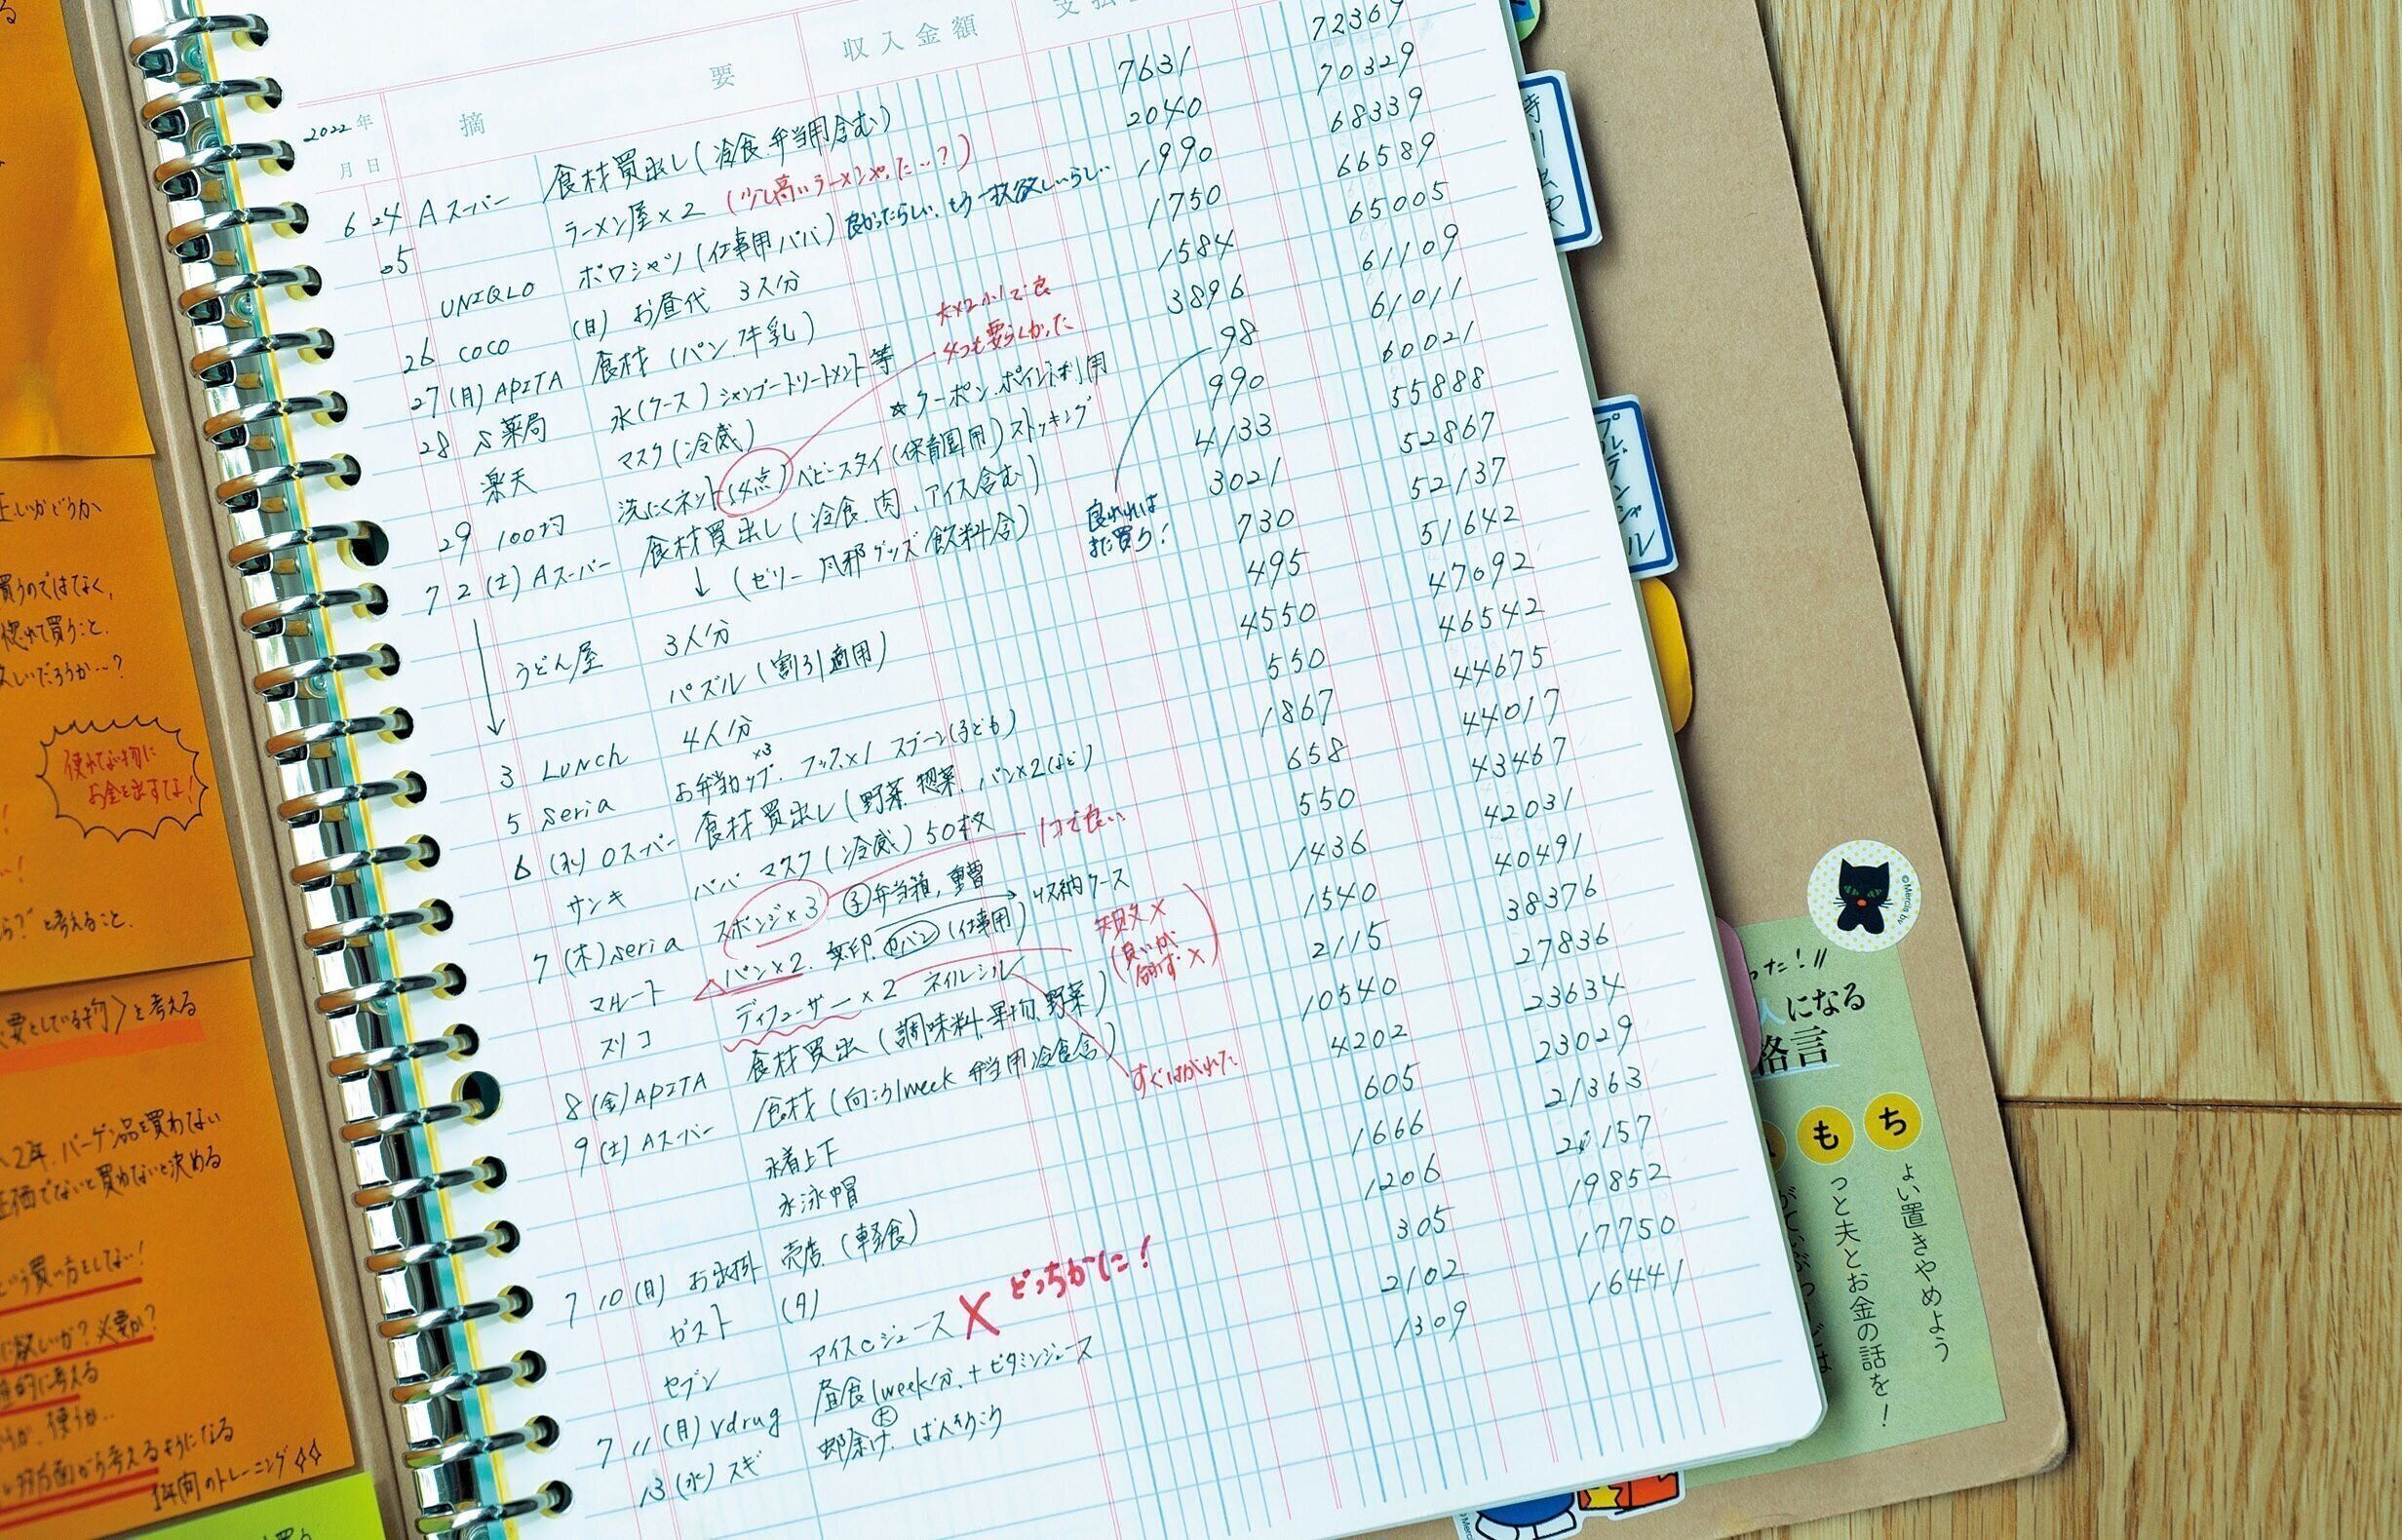 収入金額
2022年 摘 要
月 日
7631 72369
6 24 Aスーパー 食材買出し(冷食 弁当用含む) 2040 70329
25 ラーメン屋×2 (少し高いラーメンやった…?) 1990 68339
UNIQLO ポロシャツ(仕事用パパ)良かったらしい、もう一枚欲しいらしい 1750 66589
26 COCO (日) お昼代 3人分 1584 65005
27(月)APITA 食材(パン、牛乳) 3896 61109
28 S薬局 水(ケース)シャンプートリートメント等 98 61011
☆クーポン、ポイント利用
楽天 マスク(冷感) 990 60021
29 100均 洗たくネット(4点)ベビースタイ(保育園用)ストッキング 4133 55888
大×2小1で良
4つも要らんかった
7 2(土)Aスーパー 食材買出し(冷食、肉、アイス含む) 3021 52867
↓(ゼリー 風邪グッズ 飲料含)
良ければ
また買う!
730 52137
うどん屋 3人分 495 51642
パズル(割引適用) 4550 47092
3 Lunch 4人分 550 46542
5 Seria お弁当カップ×3、フック×1 スプーン(子ども) 1867 44675
6(水)Oスーパー 食材買出し(野菜、惣菜、パン×2(など) 658 44017
サンキ パパ マスク(冷感)50枚 550 43467
1コで良い
7(木)Seria スポンジ×3 子弁当箱、重曹 1436 42031
マルート パン×2、無印、カバン(仕事用)収納ケース 1540 40491
スリコ ディフューザー×2 ネイルシール 2115 38376
失敗×
(良いが
すぐはがれた
8(金)APITA 食材買出(調味料、果物、野菜) 10540 27836
9(土)Aスーパー 食材(向こう1week 弁当用冷食含) 4202 23634
水着上下 605 23029
水泳帽 1666 21363
7 10(日) お出掛 売店(軽食) 1206 20157
ガスト (夕) 305 19852
セブン アイスとジュース × どっちかに! 2102 17750
7 11(月)Vdrug 昼食1week分、+ビタミンジュース 1309 16441
13(水)スギ 虫除け、ばんそうこう
買うのではなく、
惚れて買うこと。
使わない物に
お金を出すな!
と考えること。
要としている物〉と考える
2年、バーゲン品を買わない
正価でないと買わないと決める
という買い方をしない!
に欲しいか?必要か?
的に考える
使うか…
方面から考えるようになる
1年間のトレーニング
プルデンシャル
った!!
人になる
格言
もち
よい置きやめよう
っと夫とお金の話を!
© Mercis bv